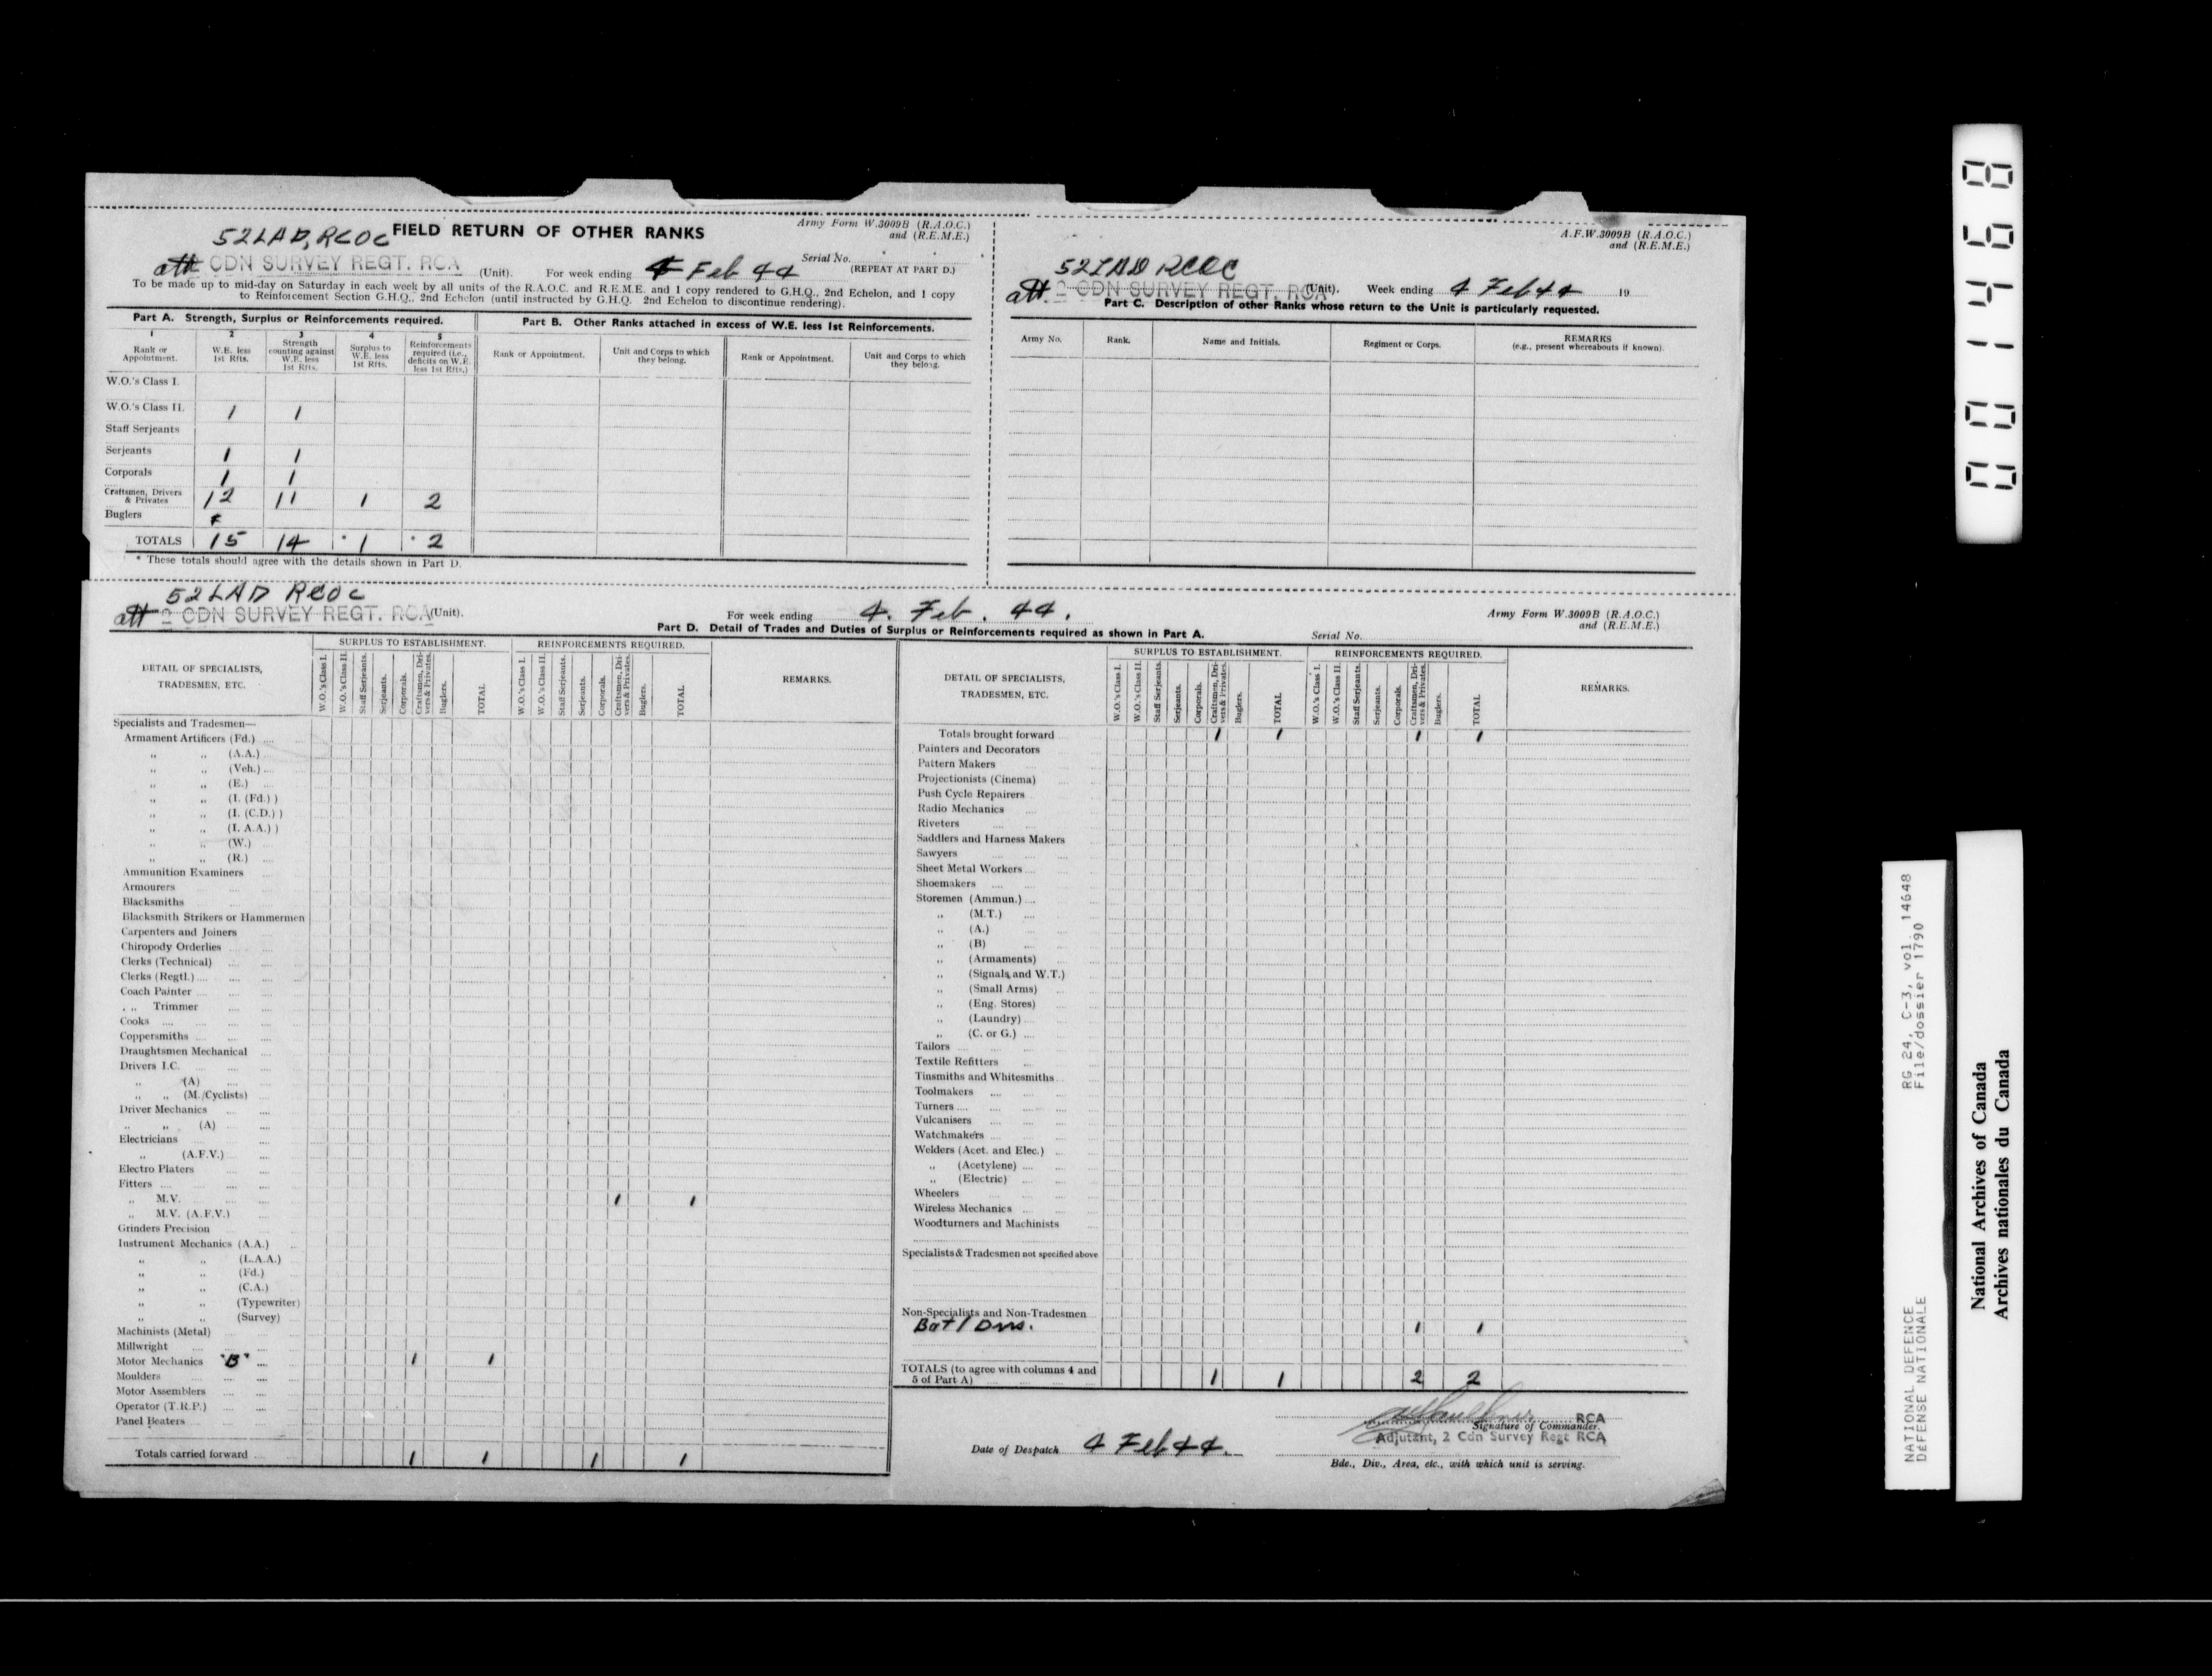 52 LAD, RCOC FIELD RETURN OF OTHER RANKS Army Form W.3009B (R.A.O.C.)
and (R.E.M.E.)
att CDN SURVEY REGT. RCA (Unit). For week ending 4 Feb 44 Serial No.
(REPEAT AT PART D.)
To be made up to mid-day on Saturday in each week by all units of the R.A.O.C. and R.E.M.E. and 1 copy rendered to G.H.Q., 2nd Echelon, and 1 copy
to Reinforcement Section G.H.Q., 2nd Echelon (until instructed by G.H.Q. 2nd Echelon to discontinue rendering).
Part A. Strength, Surplus or Reinforcements required.
1 2 3 4 5
Rank or Appointment. W.E. less 1st Rfts. Strength counting against W.E. less 1st Rfts. Surplus to W.E. less 1st Rfts. Reinforcements required (i.e., deficits on W.E. less 1st Rfts.)
W.O.'s Class I.
W.O.'s Class II. 1 1
Staff Serjeants
Serjeants 1 1
Corporals 1 1
Craftsmen, Drivers & Privates 12 11 1 2
Buglers
TOTALS 15 14 * 1 * 2
* These totals should agree with the details shown in Part D.
Part B. Other Ranks attached in excess of W.E. less 1st Reinforcements.
Rank or Appointment. Unit and Corps to which they belong. Rank or Appointment. Unit and Corps to which they belong.
A.F.W.3009B (R.A.O.C.)
and (R.E.M.E.)
52 LAD RCOC
att. 2 CDN SURVEY REGT. RCA (Unit). Week ending 4 Feb 44 19
Part C. Description of other Ranks whose return to the Unit is particularly requested.
Army No. Rank. Name and Initials. Regiment or Corps. REMARKS
(e.g., present whereabouts if known).
52 LAD RCOC
att 2 CDN SURVEY REGT. RCA (Unit). For week ending 4. Feb. 44. Army Form W.3009B (R.A.O.C.)
and (R.E.M.E.)
Part D. Detail of Trades and Duties of Surplus or Reinforcements required as shown in Part A. Serial No.
DETAIL OF SPECIALISTS, TRADESMEN, ETC. SURPLUS TO ESTABLISHMENT. REINFORCEMENTS REQUIRED. REMARKS.
W.O.'s Class I. W.O.'s Class II. Staff Serjeants. Serjeants. Corporals. Craftsmen, Drivers & Privates. Buglers. TOTAL W.O.'s Class I. W.O.'s Class II. Staff Serjeants. Serjeants. Corporals. Craftsmen, Drivers & Privates. Buglers. TOTAL
Specialists and Tradesmen—
Armament Artificers (Fd.)
,, ,, (A.A.)
,, ,, (Veh.)
,, ,, (E.)
,, ,, (I. (Fd.) )
,, ,, (I. (C.D.) )
,, ,, (I. A.A.) )
,, ,, (W.)
,, ,, (R.)
Ammunition Examiners
Armourers
Blacksmiths
Blacksmith Strikers or Hammermen
Carpenters and Joiners
Chiropody Orderlies
Clerks (Technical)
Clerks (Regtl.)
Coach Painter
,, Trimmer
Cooks
Coppersmiths
Draughtsmen Mechanical
Drivers I.C.
,, (A)
,, ,, (M./Cyclists)
Driver Mechanics
,, ,, (A)
Electricians
,, (A.F.V.)
Electro Platers
Fitters
,, M.V. 1 1
,, M.V. (A.F.V.)
Grinders Precision
Instrument Mechanics (A.A.)
,, ,, (L.A.A.)
,, ,, (Fd.)
,, ,, (C.A.)
,, ,, (Typewriter)
,, ,, (Survey)
Machinists (Metal)
Millwright
Motor Mechanics "B" 1 1
Moulders
Motor Assemblers
Operator (T.R.P.)
Panel Beaters
Totals carried forward 1 1 1 1
DETAIL OF SPECIALISTS, TRADESMEN, ETC. SURPLUS TO ESTABLISHMENT. REINFORCEMENTS REQUIRED. REMARKS.
W.O.'s Class I. W.O.'s Class II. Staff Serjeants. Serjeants. Corporals. Craftsmen, Drivers & Privates. Buglers. TOTAL W.O.'s Class I. W.O.'s Class II. Staff Serjeants. Serjeants. Corporals. Craftsmen, Drivers & Privates. Buglers. TOTAL
Totals brought forward 1 1 1 1
Painters and Decorators
Pattern Makers
Projectionists (Cinema)
Push Cycle Repairers
Radio Mechanics
Riveters
Saddlers and Harness Makers
Sawyers
Sheet Metal Workers
Shoemakers
Storemen (Ammun.)
,, (M.T.)
,, (A.)
,, (B)
,, (Armaments)
,, (Signals and W.T.)
,, (Small Arms)
,, (Eng. Stores)
,, (Laundry)
,, (C. or G.)
Tailors
Textile Refitters
Tinsmiths and Whitesmiths
Toolmakers
Turners
Vulcanisers
Watchmakers
Welders (Acet. and Elec.)
,, (Acetylene)
,, (Electric)
Wheelers
Wireless Mechanics
Woodturners and Machinists
Specialists & Tradesmen not specified above
Non-Specialists and Non-Tradesmen
Bat/Dvrs. 1 1
TOTALS (to agree with columns 4 and 5 of Part A) 1 1 2 2
RCA
Signature of Commander.
Adjutant, 2 Cdn Survey Regt RCA
Date of Despatch 4 Feb 44.
Bde., Div., Area, etc., with which unit is serving.
001468
NATIONAL DEFENCE RG 24, C-3, vol. 14648
DÉFENSE NATIONALE File/dossier 1790
National Archives of Canada
Archives nationales du Canada